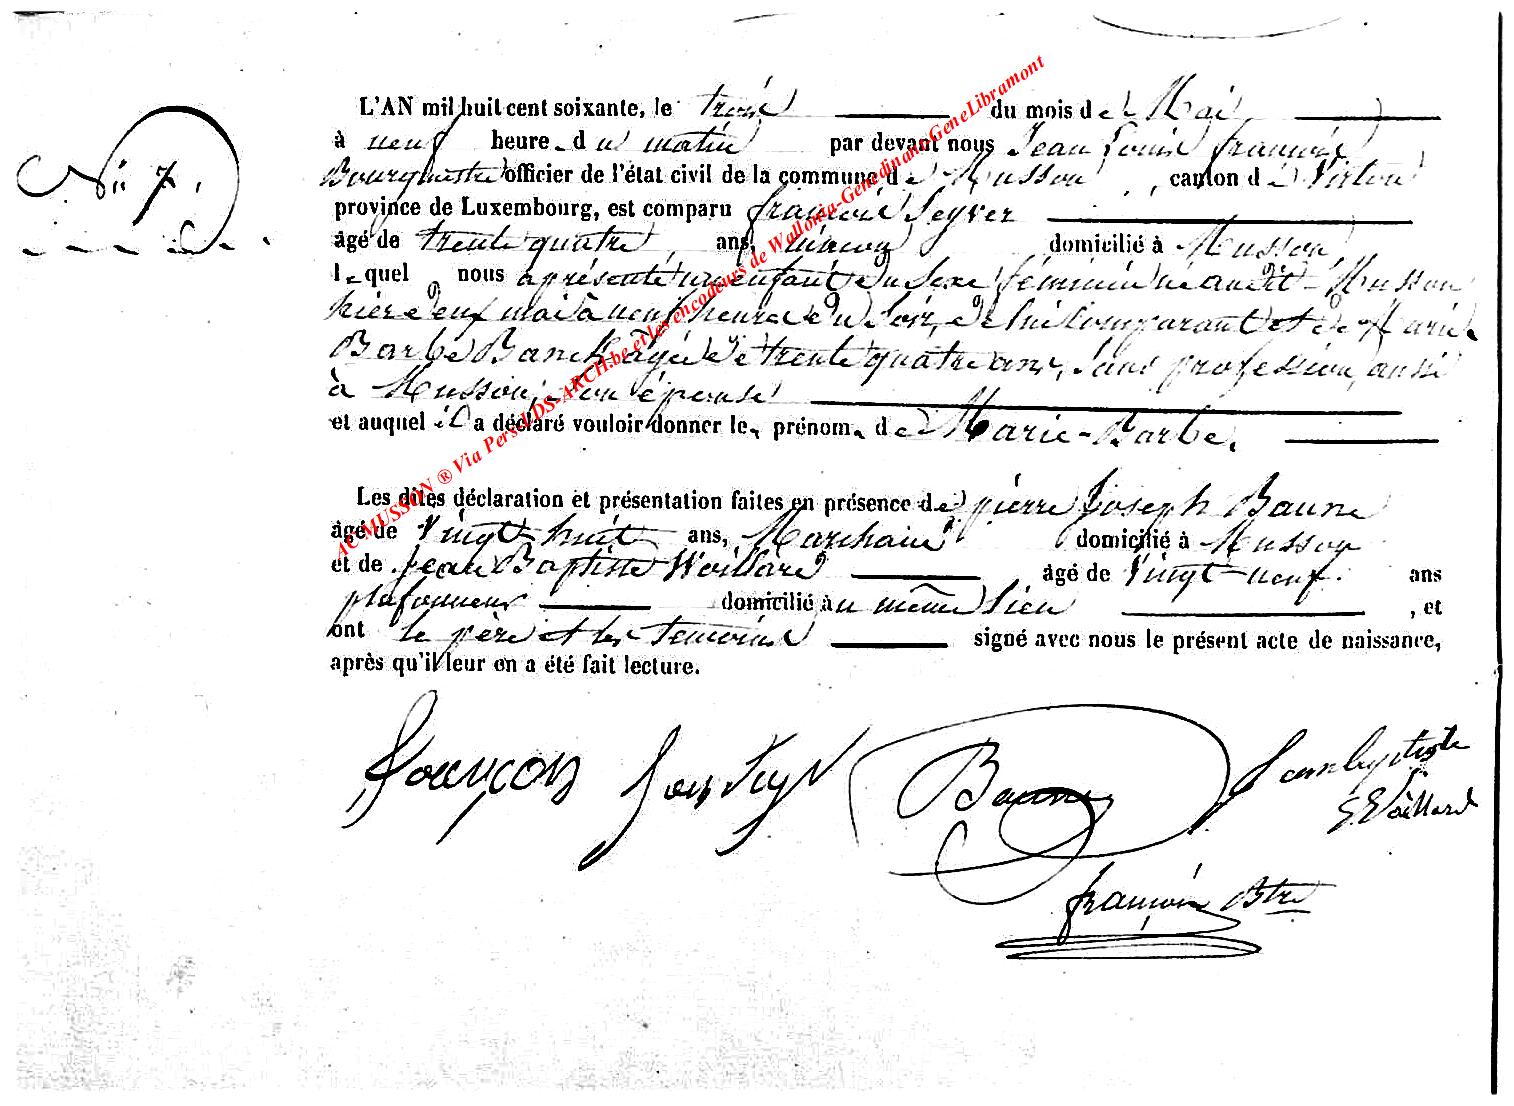 N° 7.
L'AN mil huit cent soixante, le trois du mois de Mai
à neuf heure du matin par devant nous Jean Louis françois
Bourgmestre officier de l'état civil de la commune de Musson, canton de Virton
province de Luxembourg, est comparu françois Seyver
âgé de trente quatre ans, maçon domicilié à Musson,
lequel nous a présenté un enfant du sexe féminin né audit Musson
hier deux mai à neuf heures du soir, de lui comparant et de Marie
Barbe Banck agée de trente quatre ans, sans profession, aussi
à Musson, son épouse
et auquel il a déclaré vouloir donner le prénom de Marie-Barbe.
Les dites déclaration et présentation faites en présence de pierre Joseph Baune
âgé de Vingt-huit ans, Marchand domicilié à Musson
et de Jean Baptiste Waillard âgé de Vingt-neuf ans
plafonneur domicilié au même lieu, et
ont le père et les temoins signé avec nous le présent acte de naissance,
après qu'il leur en a été fait lecture.
Baune
Jean baptiste
françois Btre
AC MUSSON ® Via Pers-LDS-ARCH.be et les encodeurs de Wallonia-Genedinant-GeneLibramont